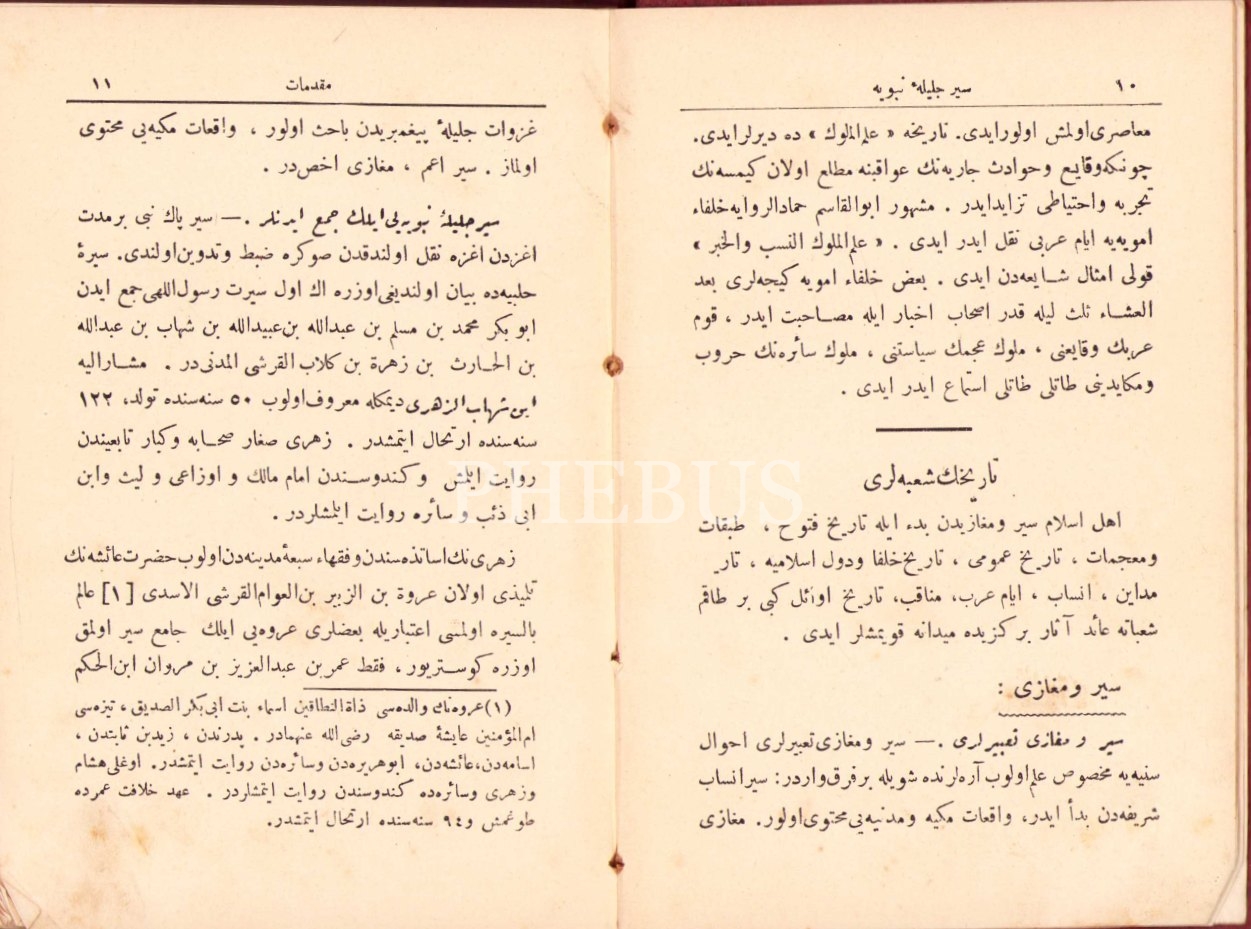 ١٠ سیر جلیلهٔ نبویه
معاصری اولمش اولور ایدی. تاریخه « علم الملوك » ده دیرلر ایدی.
چونكه وقایع وحوادث جاریه‌نك عواقبنه مطلع اولان كیمسه‌نك
تجربه واحتیاطی تزاید ایدر . مشهور ابوالقاسم حمادالروایه خلفاء
امویه‌یه ایام عربی نقل ایدر ایدی . « علم الملوك النسب والخبر »
قولی امثال شایعه‌دن ایدی . بعض خلفاء امویه كیجه‌لری بعد
العشاء ثلث لیله قدر اصحاب اخبار ایله مصاحبت ایدر ، قوم
عربك وقایعنی ، ملوك عجمك سیاستنی ، ملوك سائره‌نك حروب
ومكایدینی طاتلی طاتلی استماع ایدر ایدی .
تاریخك شعبه‌لری
اهل اسلام سیر ومغازیدن بدء ایله تاریخ فتوح ، طبقات
ومعجمات ، تاریخ عمومی ، تاریخ خلفا ودول اسلامیه ، تار
مداین ، انساب ، ایام عرب، مناقب، تاریخ اوائل كبی بر طاقم
شعباته عائد آثار بركزیده میدانه قویمشلر ایدی .
سیر ومغازی :
سیر و مغازی تعبیرلری . — سیر ومغازی تعبیرلری احوال
سنیه‌یه مخصوص علم اولوب آره‌لرنده شویله بر فرق واردر: سیر انساب
شریفه‌دن بدأ ایدر، واقعات مكیه ومدنیه‌یی محتوی اولور. مغازی
مقدمات ١١
غزوات جلیلهٔ پیغمبریدن باحث اولور ، واقعات مكیه‌یی محتوی
اولماز . سیر اعم ، مغازی اخص در .
سیر جلیلهٔ نبویه‌یی ایلك جمع ایدنلر . — سیر پاك نبی بر مدت
اغزدن اغزه نقل اولندقدن صوكره ضبط وتدوین اولندی. سیرهٔ
حلبیه‌ده بیان اولندیغی اوزره اك اول سیرت رسول اللهی جمع ایدن
ابو بكر محمد بن مسلم بن عبدالله بن عبیدالله بن شهاب بن عبدالله
بن الحارث بن زهرة بن كلاب القرشی المدنی در . مشارالیه
ابن شهاب الزهری دیمكله معروف اولوب ٥٠ سنه‌سنده تولد، ١٢٢
سنه‌سنده ارتحال ایتمشدر . زهری صغار صحابه وكبار تابعیندن
روایت ایلمش وكندوسندن امام مالك و اوزاعی و لیث وابن
ابی ذئب و سائره روایت ایلمشلردر .
زهری‌نك اساتذه‌سندن وفقهاء سبعهٔ مدینه‌دن اولوب حضرت عائشه‌نك
تلمیذی اولان عروة بن الزبیر بن العوام القرشی الاسدی [١] عالم
بالسیره اولمسی اعتباریله بعضلری عروه‌یی ایلك جامع سیر اولمق
اوزره كوستریور ، فقط عمر بن عبدالعزیز بن مروان ابن الحكم
(١) عروه‌نك والده‌سی ذاة النطاقین اسماء بنت ابی بكر الصدیق ، تیزه‌سی
ام المؤمنین عایشهٔ صدیقه رضی الله عنهمادر . پدرندن ، زید بن ثابتدن ،
اسامه‌دن، عائشه‌دن، ابوهریره‌دن وسائره‌دن روایت ایتمشدر. اوغلی هشام
وزهری وسائره‌ده كندوسندن روایت ایتمشلردر . عهد خلافت عمرده
طوغمش و ٩٤ سنه‌سنده ارتحال ایتمشدر.
PHEBUS